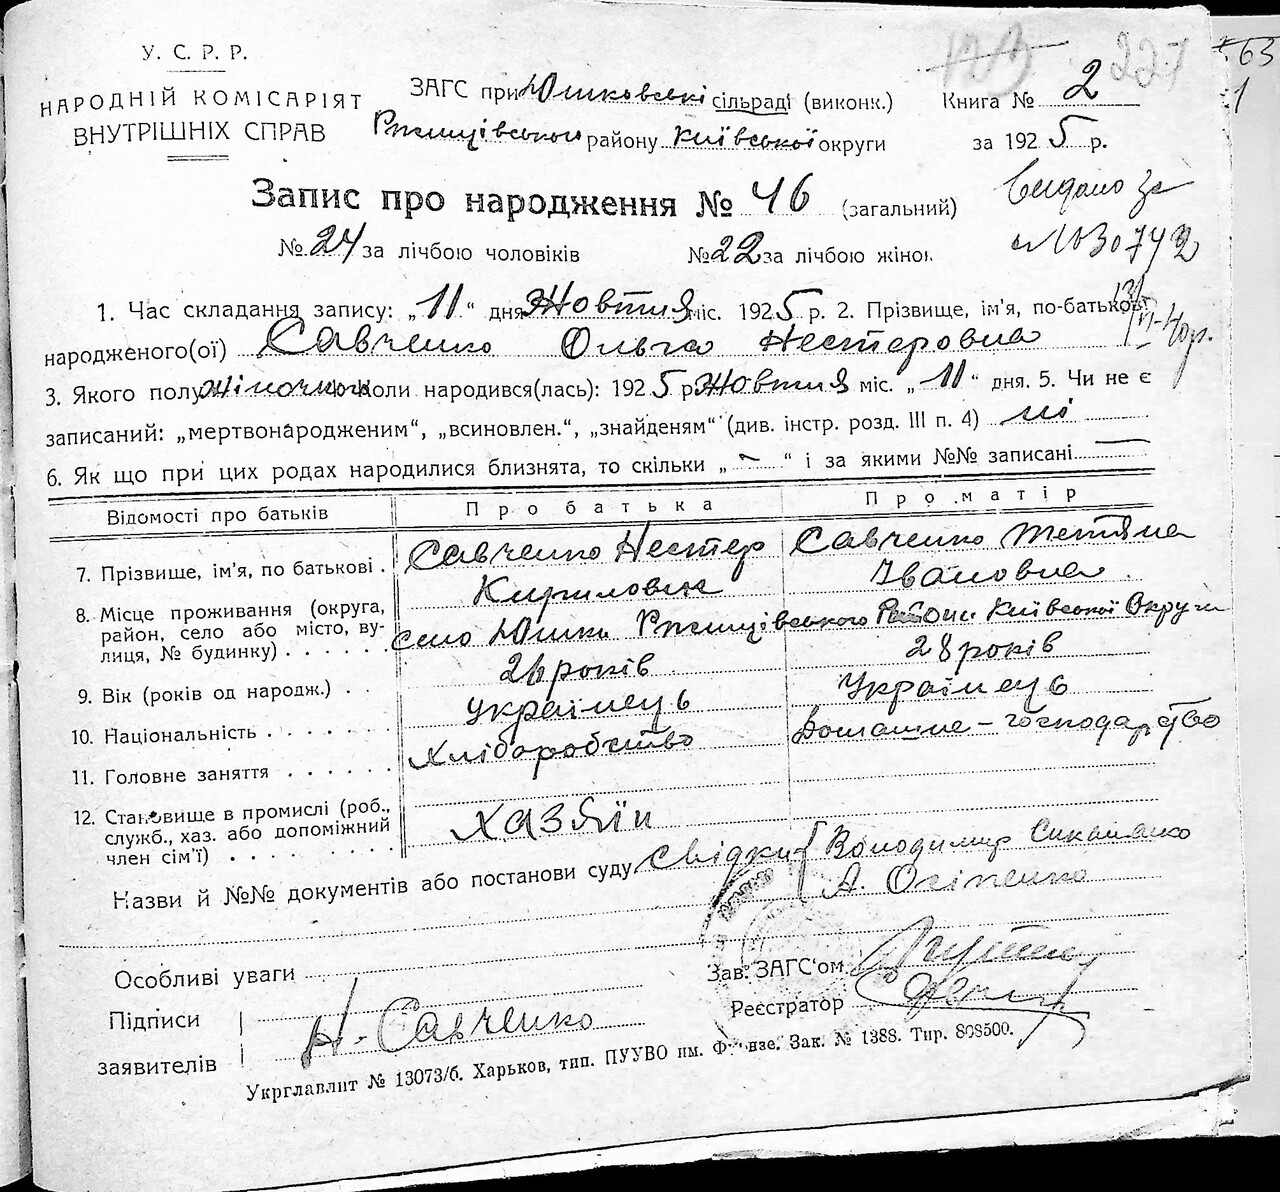 У. С. Р. Р.
НАРОДНІЙ КОМІСАРІЯТ
ВНУТРІШНІХ СПРАВ
ЗАГС при Юшковські сільраді (виконк.)
Ржищівського району Київської округи
123 227
Книга № 2
за 1925 р.
63
1
Запис про народження № 46 (загальний)
Видано за
№ 030742
№ 24 за лічбою чоловіків № 22 за лічбою жінок
1. Час складання запису: „11“ дня Жовтня міс. 1925 р. 2. Прізвище, ім’я, по-батькові
народженого(ої) Савченко Ольга Нестеровна
3. Якого полу жіночного Коли народився(лась): 1925 р. Жовтня міс. „11“ дня. 5. Чи не є
записаний: „мертвонародженим“, „всиновлен.“, „знайденям“ (див. інстр. розд. III п. 4) ні
6. Як що при цих родах народилися близнята, то скільки „-“ і за якими №№ записані —
Відомості про батьків Про батька Про матір
7. Прізвище, ім’я, по батькові . Савченко Нестер Кирилович Савченко Тетяна Івановна
8. Місце проживання (округа,
район, село або місто, ву-
лиця, № будинку) . . . . . . Село Юшки Ржищівського Району Київської Округи
9. Вік (років од народж.) . . 26 років 28 років
10. Національність . . . . . . . українець Українець
11. Головне заняття . . . . . . Хліборобство Домашнє-господарство
12. Становище в промислі (роб.,
служб., хаз. або допоміжний
член сім’ї) . . . . . . . . . Хазяїн
Назви й №№ документів або постанови суду Свідки { Володимир
А. Осіпенко
Особливі уваги
Зав. ЗАГС‘ом
Підписи
заявителів Н. Савченко
Реєстратор
Укрглавліт № 13073/б. Харьков, тип. ПУУВО им. Фрунзе. Зак. № 1388. Тир. 808500.